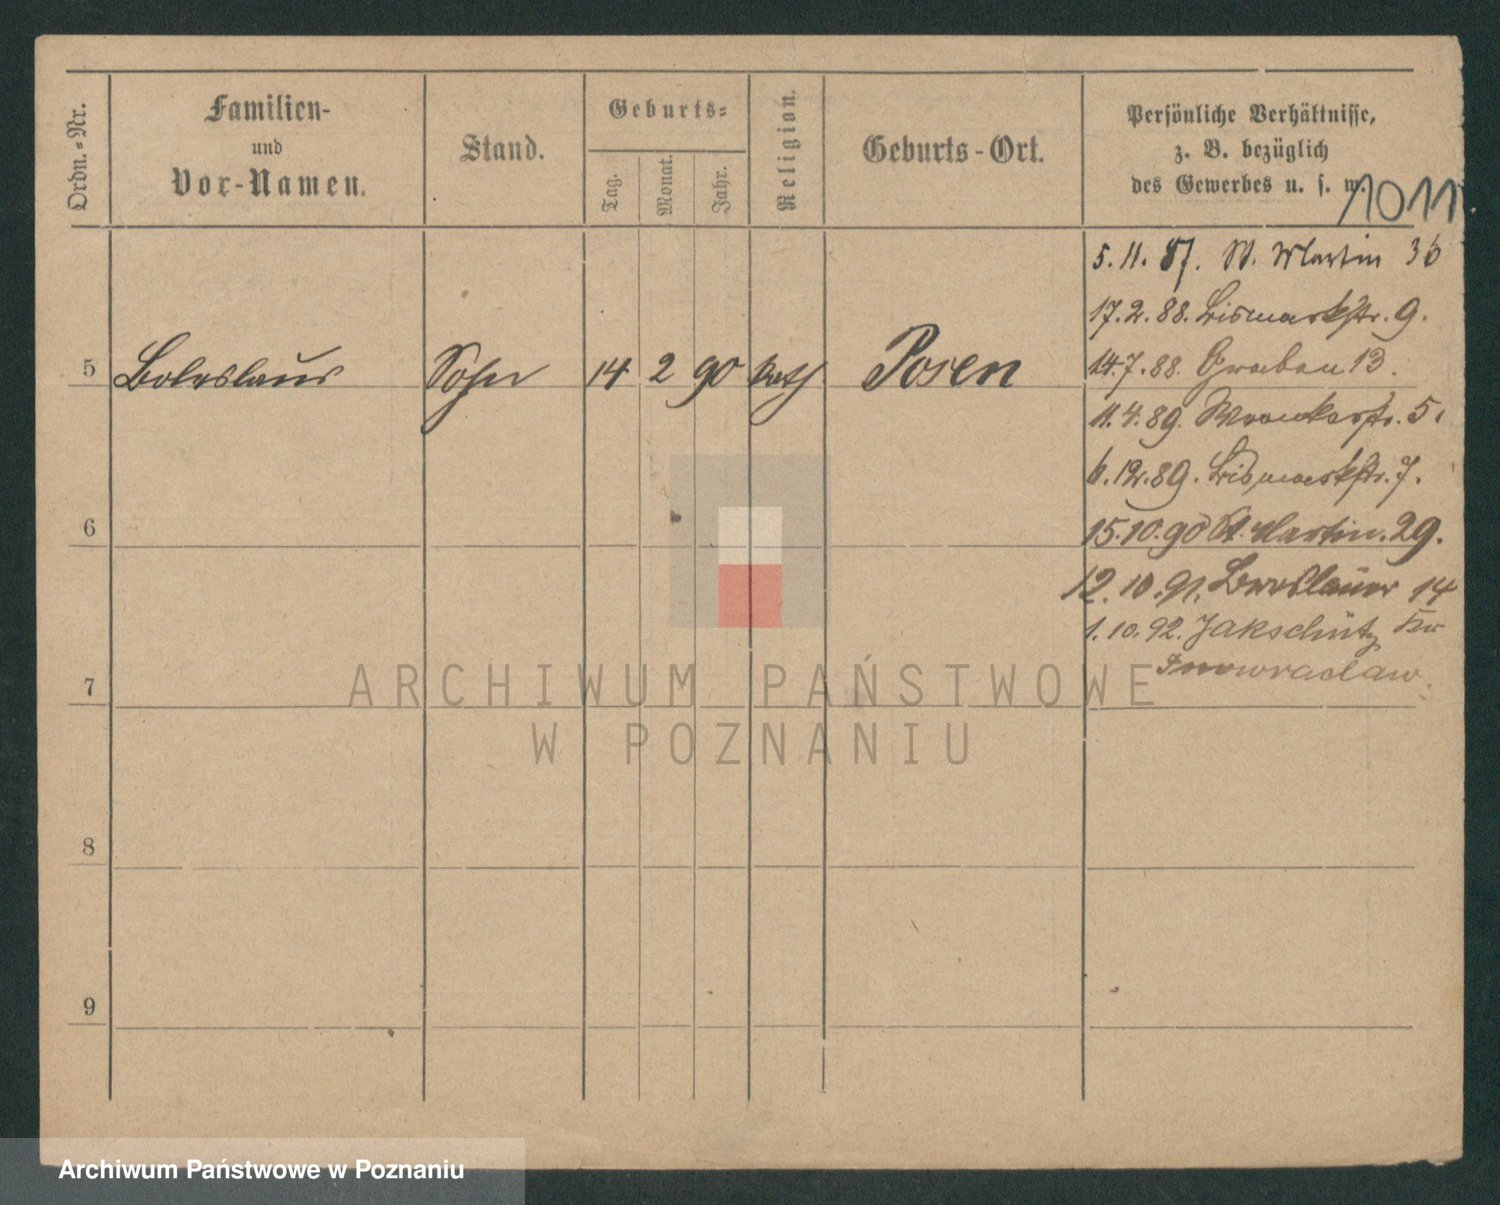 Ordn.-Nr.
Familien-
und
Vor-Namen.
Stand.
Geburts-
Tag.
Monat.
Jahr.
Religion.
Geburts-Ort.
Persönliche Verhältnisse,
z. B. bezüglich
des Gewerbes u. s. w.
1011
5.11.87. St. Martin 36
17.2.88. Bismarkstr. 9.
5 Boleslaus Sohn 14 2 90 kath Posen
14.7.88. Graben 13.
11.4.89. Wronkerstr. 5.
6.12.89. Bismarkstr. 7.
6
15.10.90 St. Martin. 29.
12.10.91. Breslauer 14
1.10.92. Jakschütz Kr
Inowraclaw.
7
8
9
ARCHIWUM PAŃSTWOWE
W POZNANIU
Archiwum Państwowe w Poznaniu